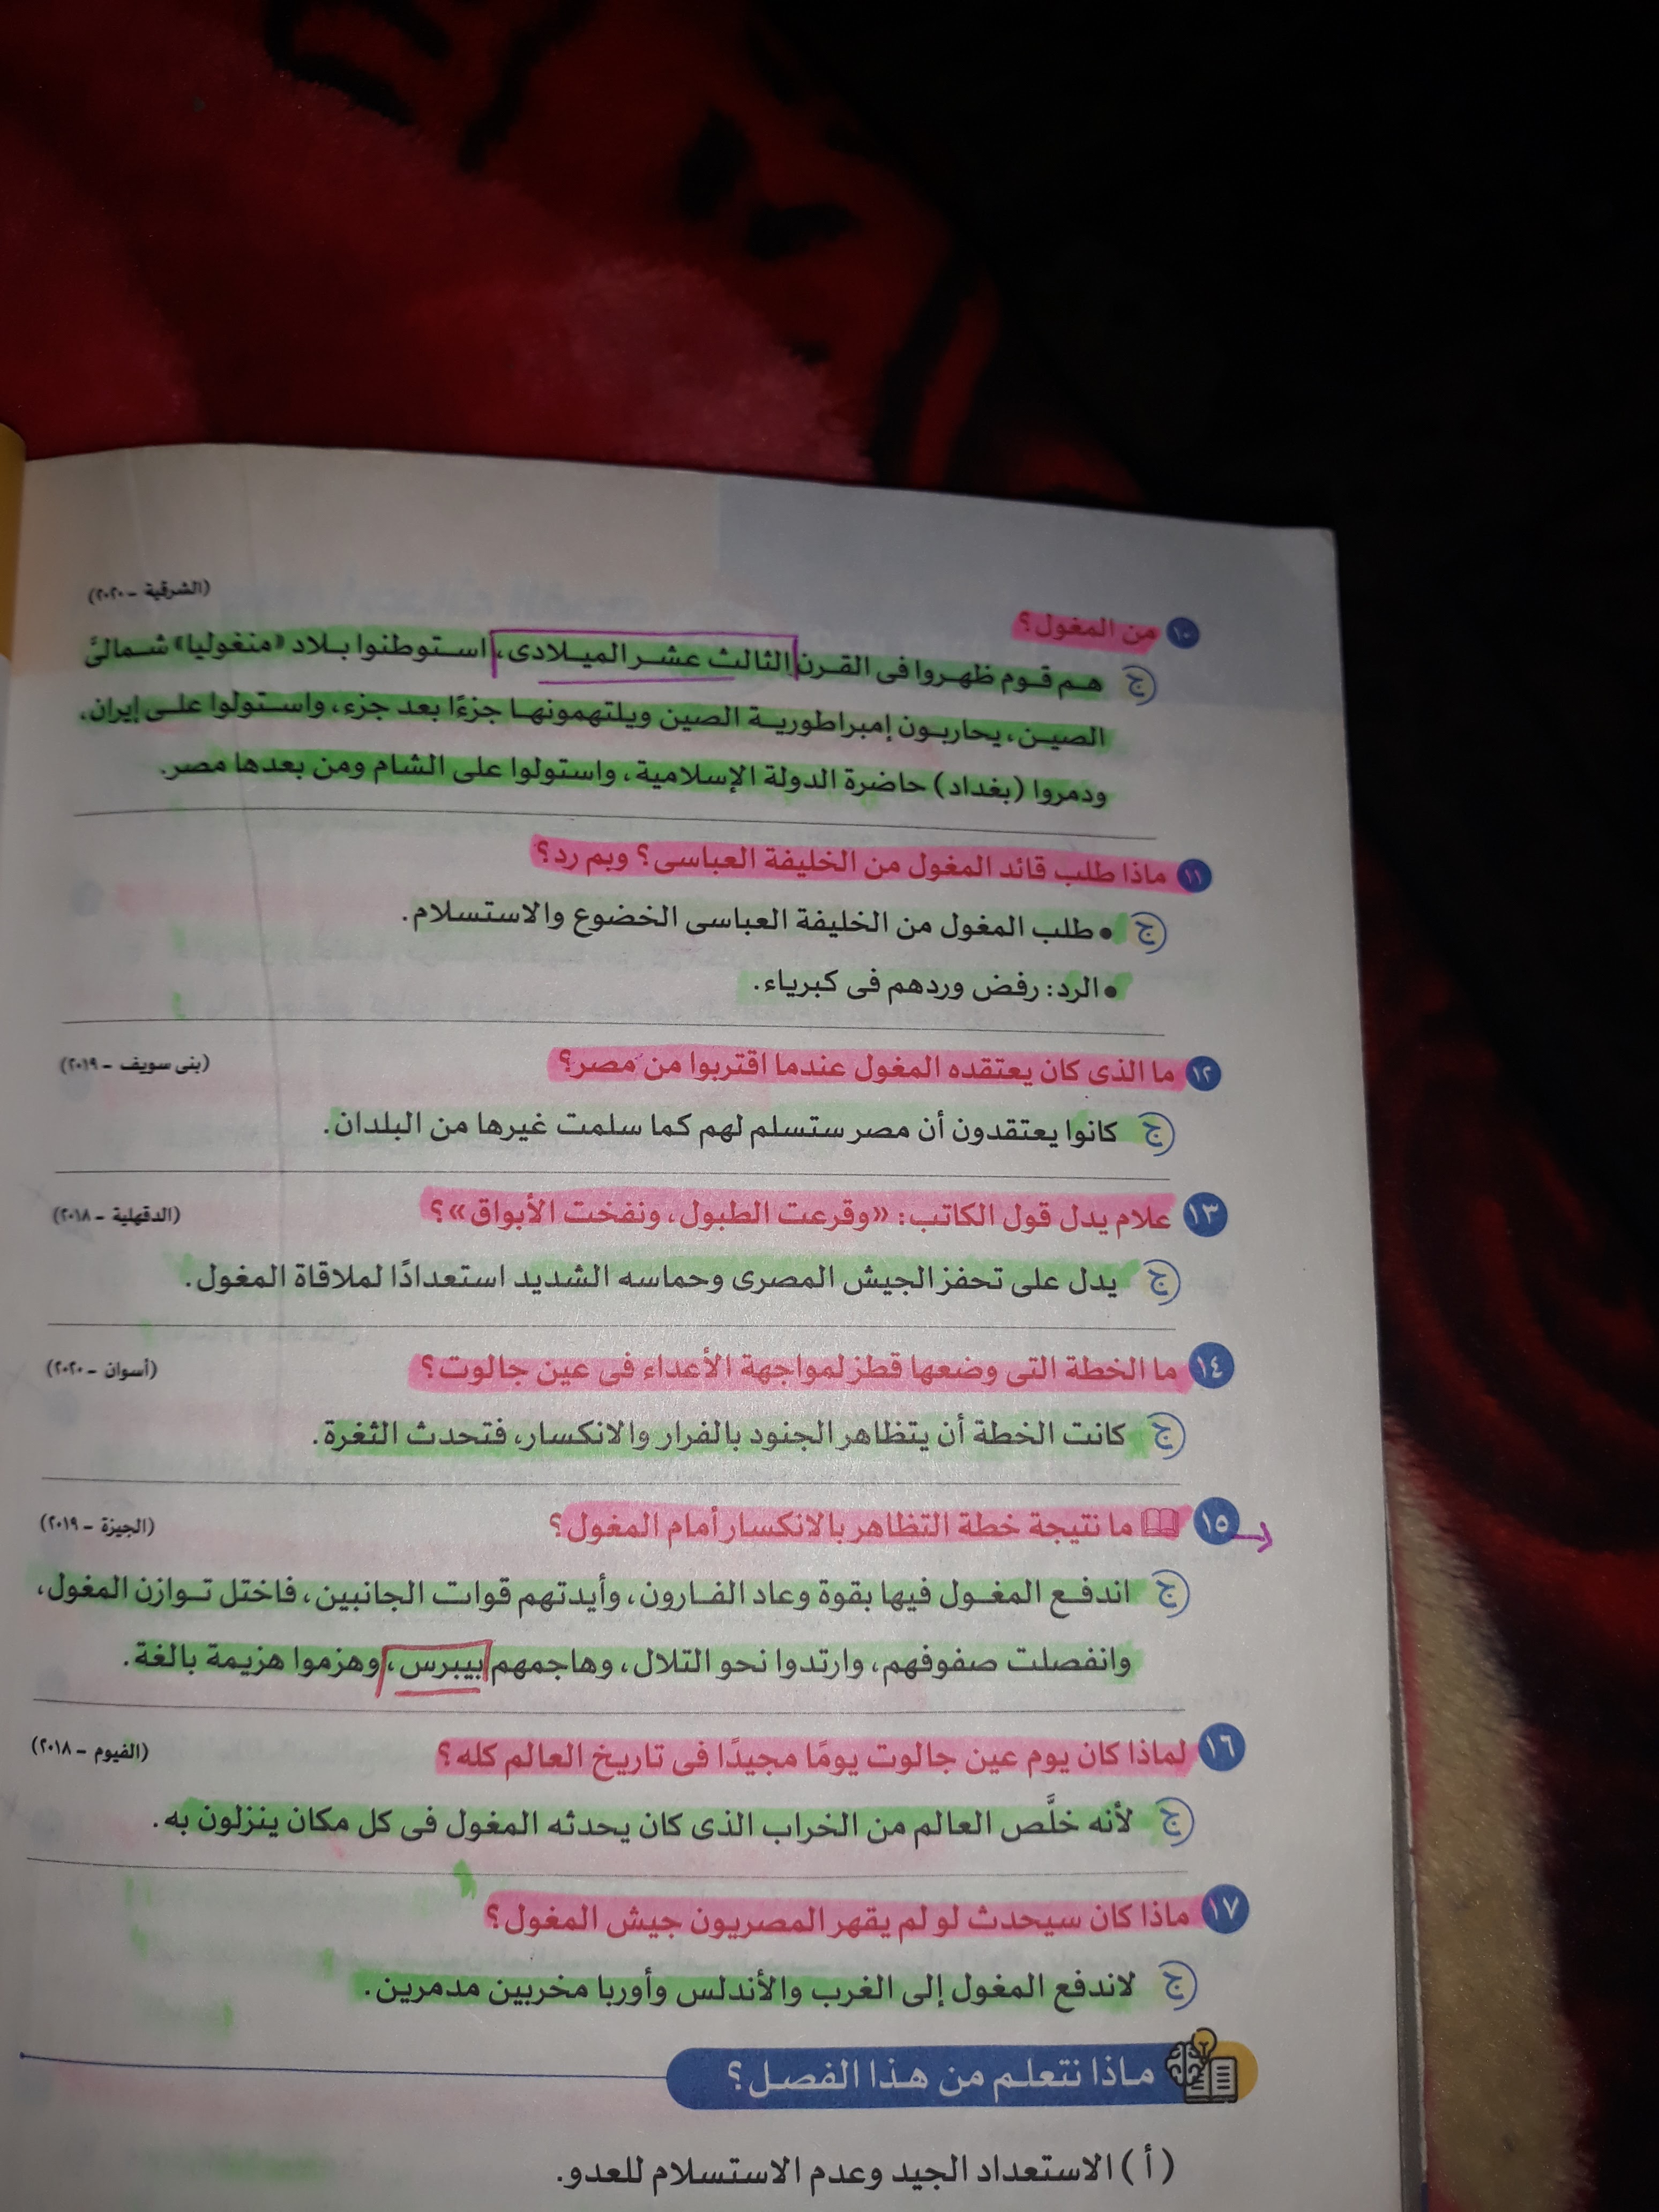 ١٠ من المغول؟ (الشرقية - ٢٠٢٠)
ج هم قوم ظهروا فى القرن الثالث عشر الميلادى، استوطنوا بلاد «منغوليا» شمالىَّ
الصين، يحاربون إمبراطورية الصين ويلتهمونها جزءًا بعد جزء، واستولوا على إيران،
ودمروا (بغداد) حاضرة الدولة الإسلامية، واستولوا على الشام ومن بعدها مصر.
١١ ماذا طلب قائد المغول من الخليفة العباسى؟ وبم رد؟
ج • طلب المغول من الخليفة العباسى الخضوع والاستسلام.
• الرد: رفض وردهم فى كبرياء.
١٢ ما الذى كان يعتقده المغول عندما اقتربوا من مصر؟ (بنى سويف - ٢٠١٩)
ج كانوا يعتقدون أن مصر ستسلم لهم كما سلمت غيرها من البلدان.
١٣ علام يدل قول الكاتب: «وقرعت الطبول، ونفخت الأبواق»؟ (الدقهلية - ٢٠١٨)
ج يدل على تحفز الجيش المصرى وحماسه الشديد استعدادًا لملاقاة المغول.
١٤ ما الخطة التى وضعها قطز لمواجهة الأعداء فى عين جالوت؟ (أسوان - ٢٠٢٠)
ج كانت الخطة أن يتظاهر الجنود بالفرار والانكسار، فتحدث الثغرة.
١٥ ما نتيجة خطة التظاهر بالانكسار أمام المغول؟ (الجيزة - ٢٠١٩)
ج اندفع المغول فيها بقوة وعاد الفارون، وأيدتهم قوات الجانبين، فاختل توازن المغول،
وانفصلت صفوفهم، وارتدوا نحو التلال، وهاجمهم بيبرس، وهزموا هزيمة بالغة.
١٦ لماذا كان يوم عين جالوت يومًا مجيدًا فى تاريخ العالم كله؟ (الفيوم - ٢٠١٨)
ج لأنه خلَّص العالم من الخراب الذى كان يحدثه المغول فى كل مكان ينزلون به.
١٧ ماذا كان سيحدث لو لم يقهر المصريون جيش المغول؟
ج لاندفع المغول إلى الغرب والأندلس وأوربا مخربين مدمرين.
ماذا نتعلم من هذا الفصل؟
(أ) الاستعداد الجيد وعدم الاستسلام للعدو.